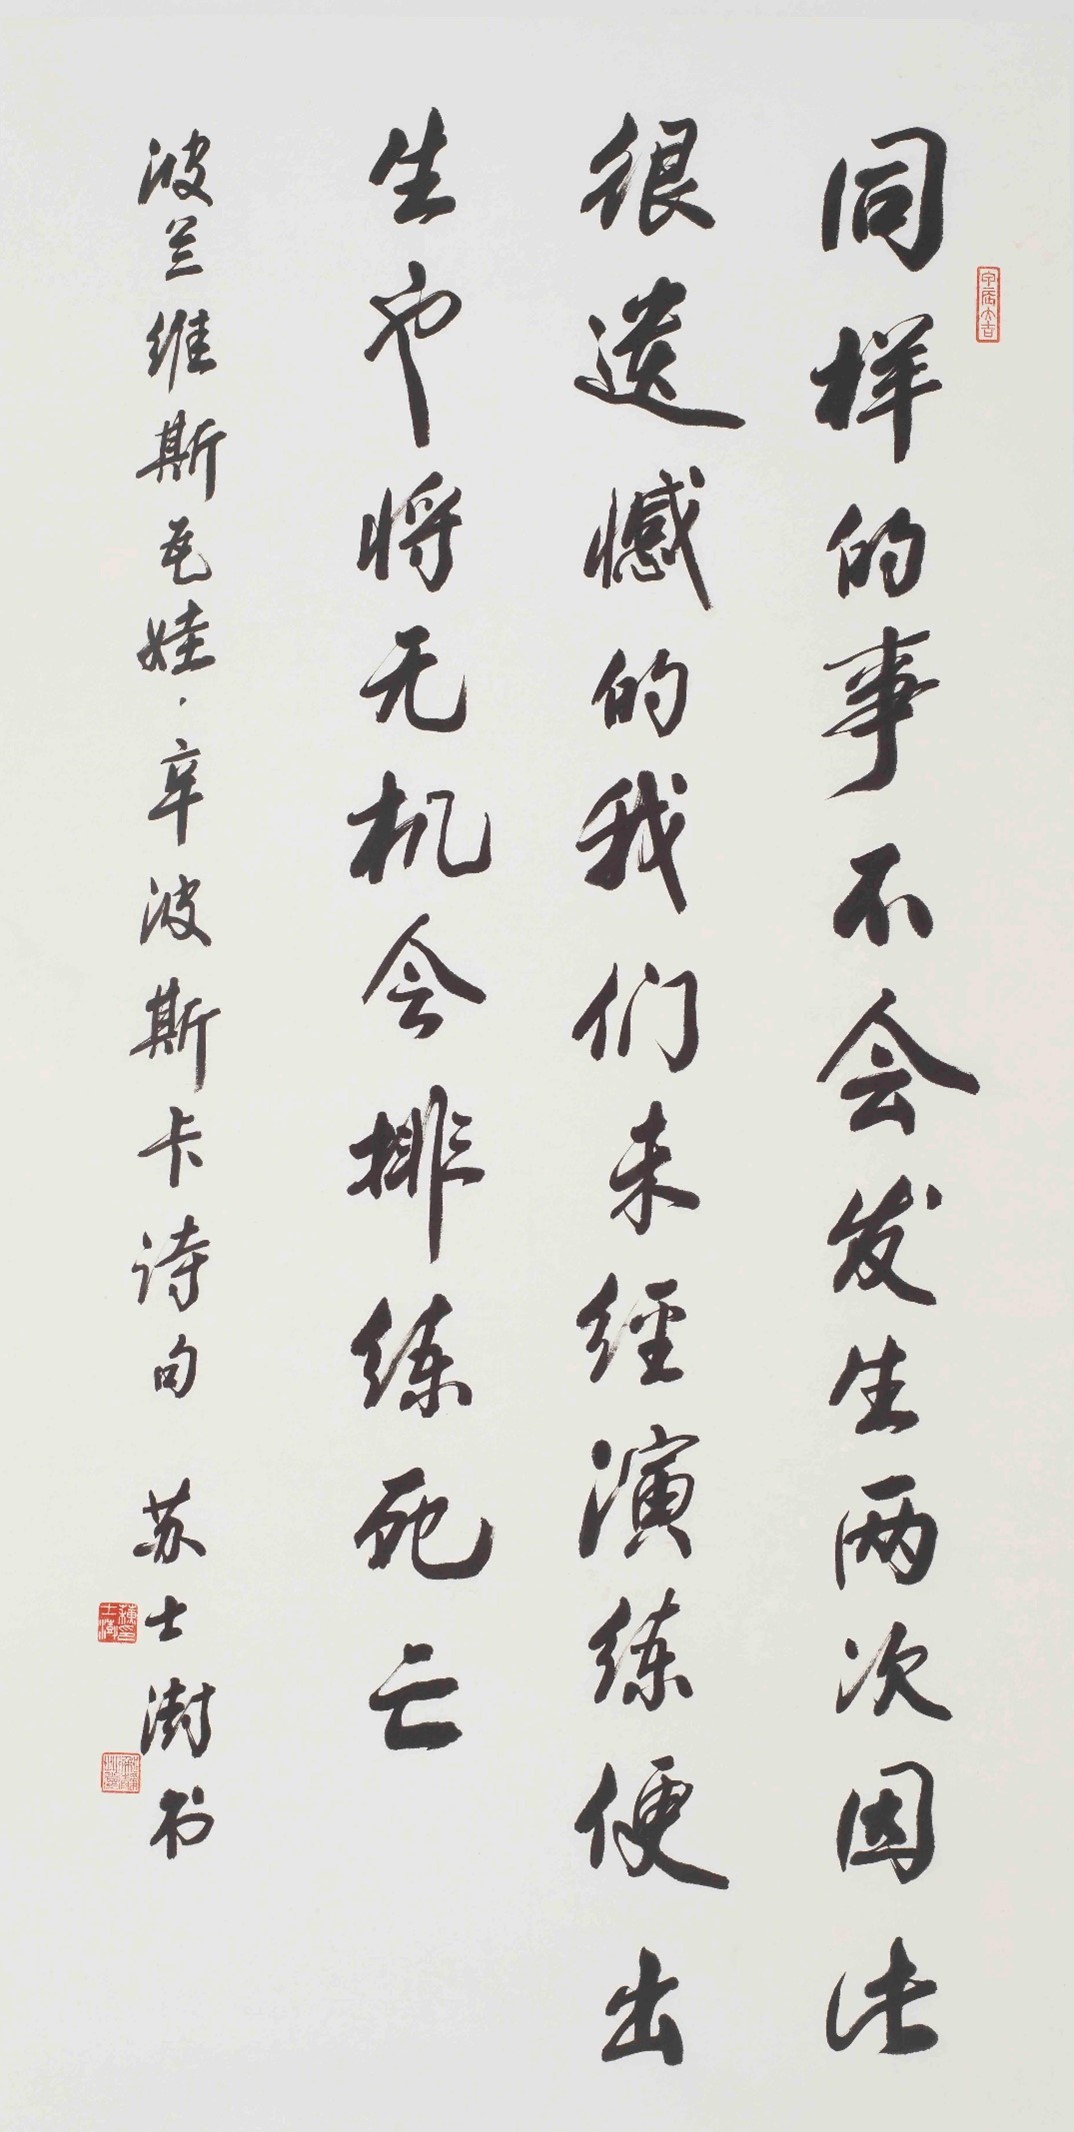 同样的事不会发生两次因此
很遗憾的我们未经演练便出
生也将无机会排练死亡
波兰维斯瓦娃·辛波斯卡诗句 苏士澍书
甲辰大吉
蘇印士澍